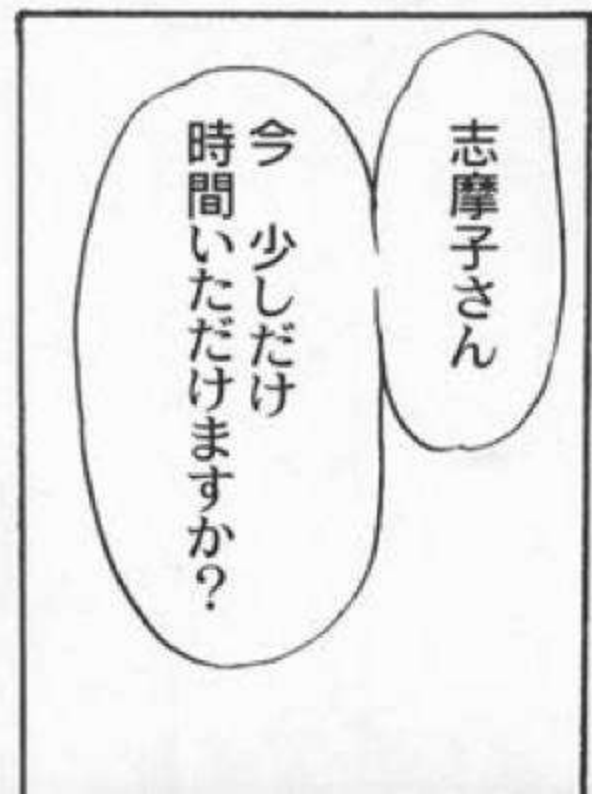 志摩子さん
今　少しだけ
時間いただけますか？